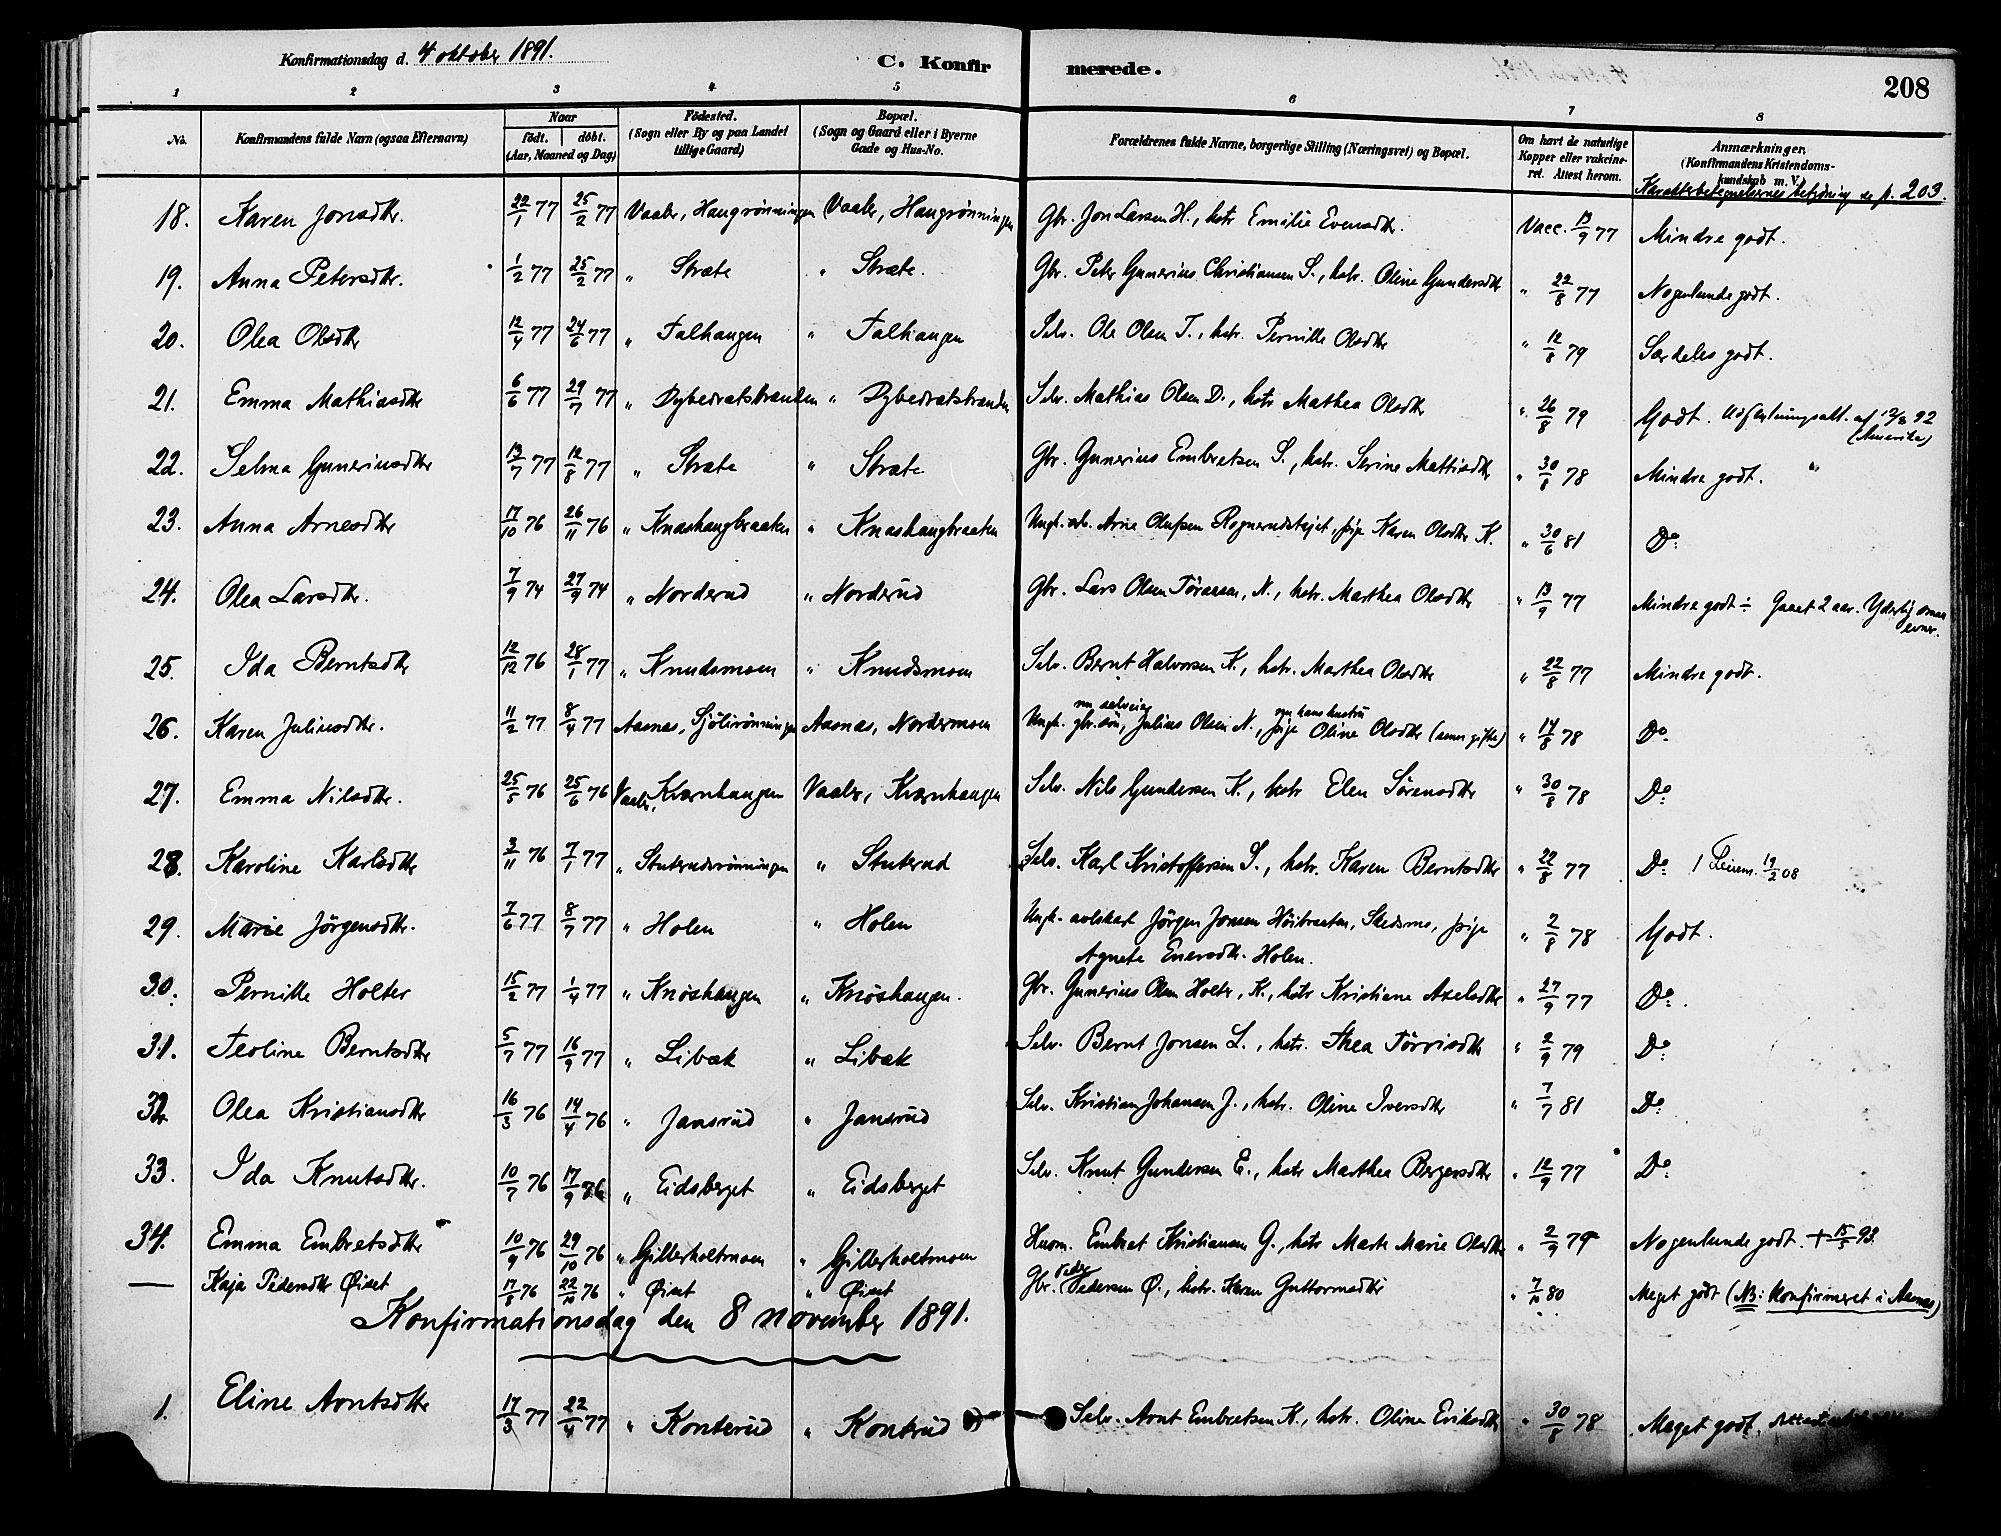 Konfirmationsdag d. 4 oktober 1891.
C. Konfirmerede.
208
1 2 3 4 5 6 7 8
No. Konfirmandens fulde Navn (ogsaa Efternavn) Naar født. døbt. (Aar, Maaned og Dag) Fødested. (Sogn eller By og paa Landet tillige Gaard) Bopæl. (Sogn og Gaard eller i Byerne Gade og Hus-No. Forældrenes fulde Navne, borgerlige Stilling (Næringsvei) og Bopæl. Om havt de naturlige Kopper eller vakcineret. Attest herom. Anmærkninger. (Konfirmandens Kristendomskundskab m. V.)
Karakterbetegnelsernes betydning se p. 203.
18. Karen Jonsdtr. 22/1 77 25/2 77 Vaaler, Haugrønningen Vaaler, Haugrønningen Gbr. Jon Larsen H., hstr Emilie Evensdtr. Vacc. 13/9 77 Mindre godt.
19. Anna Petersdtr. 1/2 77 25/2 77 " Stræte " Stræte. Gbr. Peter Gunerius Christiansen S., hstr. Oline Gundersdtr " 22/8 77 Nogenlunde godt.
20. Olea Olsdtr 12/4 77 24/6 77 " Falhaugen " Falhaugen Selv. Ole Olsen F., hstr. Pernille Olsdtr " 12/8 79 Særdeles godt.
21. Emma Mathiasdtr 6/6 77 29/7 77 " Dybedratstranden " Dybedratstranden Selv. Mathias Olsen D., hstr Mathea Olsdtr " 26/8 79 Godt. Udflytningsatt. af 12/3 92 (Amerika)
22. Selma Guneriusdtr 13/7 77 12/8 77 " Stræte " Stræte Gbr. Gunerius Embretsen S., hstr. Serine Mattisdtr " 30/8 78 Mindre godt. "
23. Anna Arnesdtr 17/10 76 26/11 76 " Knashaugbraaten " Knashaugbraaten Ungk. arb. Arne Olufsen Rognerudstejet, pige Karen Olsdtr K. " 30/6 81 Do
24. Olea Larsdtr. 7/9 74 27/9 74 " Norderud " Norderud Gbr. Lars Olsen Töraasen, N., hstr. Marthea Olsdtr " 13/9 77 Mindre godt ÷ Gaaet 2 aar. Yderlig smaa evner.
25. Ida Berntsdtr 12/12 76 28/1 77 " Knudsmoen " Knudsmoen Selv. Bernt Halvorsen K., hstr. Marthea Olsdtr " 22/8 77 Mindre godt.
26. Karen Juliusdtr. 11/2 77 8/4 77 Aasnæs, Sjölirönningen Aasnæs, Nordermoen Ungk. gbr.sön, nu selveier Julius Olsen N., pige nu hans hustru Oline Olsdtr (senere gifte) " 14/8 78 Do
27. Emma Nilsdtr. 25/5 76 25/6 76 Vaaler, Kværnhaugen Vaaler, Kværnhaugen Selv. Nils Gundersen K., hstr Elen Sörensdtr " 30/8 78 Do
28. Karoline Karlsdtr 3/11 76 7/1 77 " Stuterudsrönningen " Stuterud Selv. Karl Kristoffersen S., hstr. Karen Berntsdtr " 22/8 77 Do 1 Leierm. 19/2 08
29. Marie Jörgensdtr. 7/6 77 8/7 77 " Holen " Holen Ungk. avlskarl Jörgen Jonsen Höibraaten, Skedsmo, pige Agnete Enersdtr. Holen. " 2/8 78 Godt.
30. Pernille Holter 15/2 77 1/4 77 " Knöshaugen " Knöshaugen. Gbr. Gunerius Olsen Holter, K., hstr Kristiane Axelsdtr " 27/9 77 Do.
31. Teoline Berntsdtr 5/7 77 16/9 77 " Libæk " Libæk Selv. Bernt Jonsen L., hstr. Thea Törrisdtr " 2/9 79 Do
32. Olea Kristiansdtr 16/3 76 14/4 76 " Jansrud " Jansrud Selv. Kristian Johansen J., hstr. Oline Iversdtr " 7/7 81 Do
33. Ida Knutsdtr. 10/7 76 17/9 76 " Eidsberget " Eidsberget Selv. Knut Gundersen E., hstr Marthea Bergersdtr " 12/9 77 Do
34. Emma Embretsdtr 10/9 76 29/10 76 " Gillerholtmoen " Gillerholtmoen Husm. Embret Kristiansen G., hstr Marte Marie Olsdtr " 2/9 79 Nogenlunde godt. + 15/5 93.
— Kaja Pedersdtr Øiset 17/8 76 22/10 76 " Øiset " Øiset Gbr. Peder Pedersen Ø., hstr. Karen Guttormsdtr " 7/10 80 Meget godt (NB: Konfirmeret i Aasnæs)
Konfirmationsdag den 8 november 1891.
1. Eline Arntsdtr 17/3 77 22/4 77 " Konterud " Konterud Selv. Arnt Embretsen K., hstr. Oline Eriksdtr " 30/8 78 Meget godt.